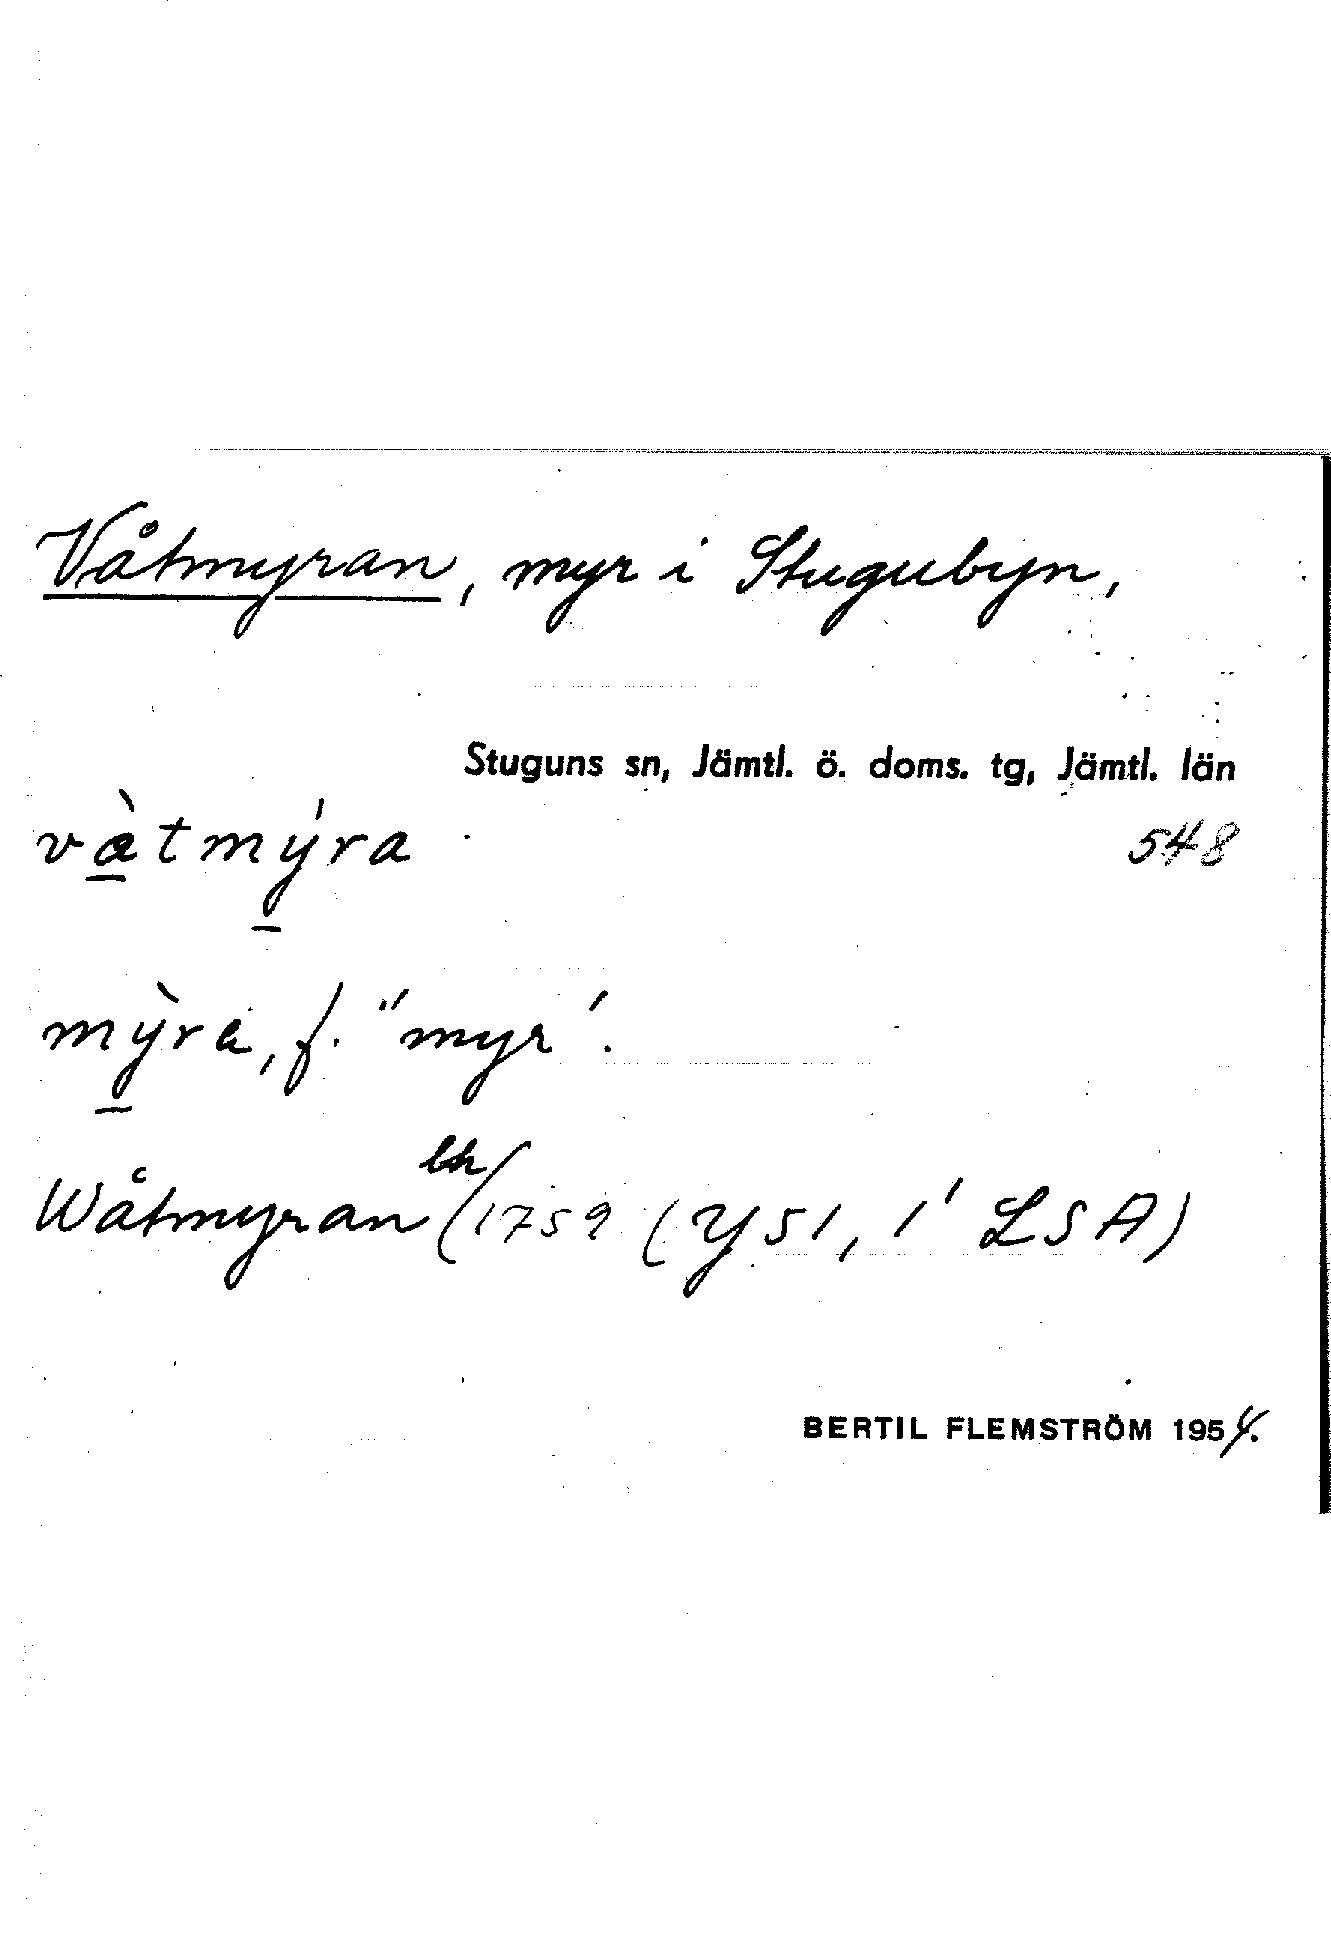 Våtmyran, myr i Stugubyn,
Stuguns sn, Jämtl. ö. doms. tg, Jämtl. län
và̱tmý̱ra
548
mỳ̱ra, f. "myr'.
lh
Wåtmyran (1759 (Y51, 1' LSA)
BERTIL FLEMSTRÖM 1954.